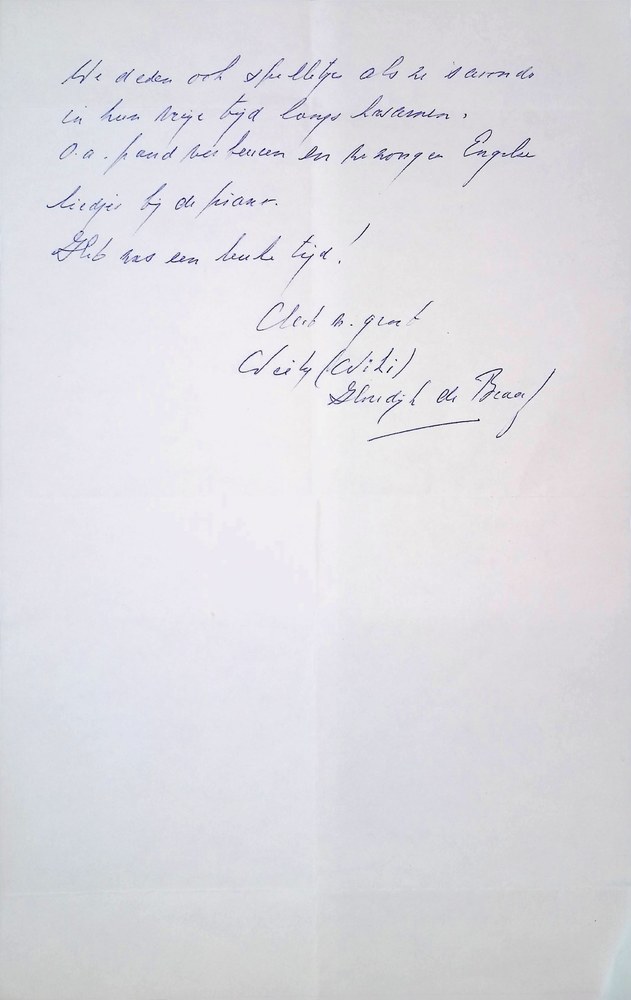 We deden ook spelletjes als ze 's avonds
in hun vrije tijd langs kwamen.
O.a. pand verbeuren en we zongen Engelse
liedjes bij de piano.
Het was een leuke tijd!
Met vr. groet
(Wiki)
de Braaf